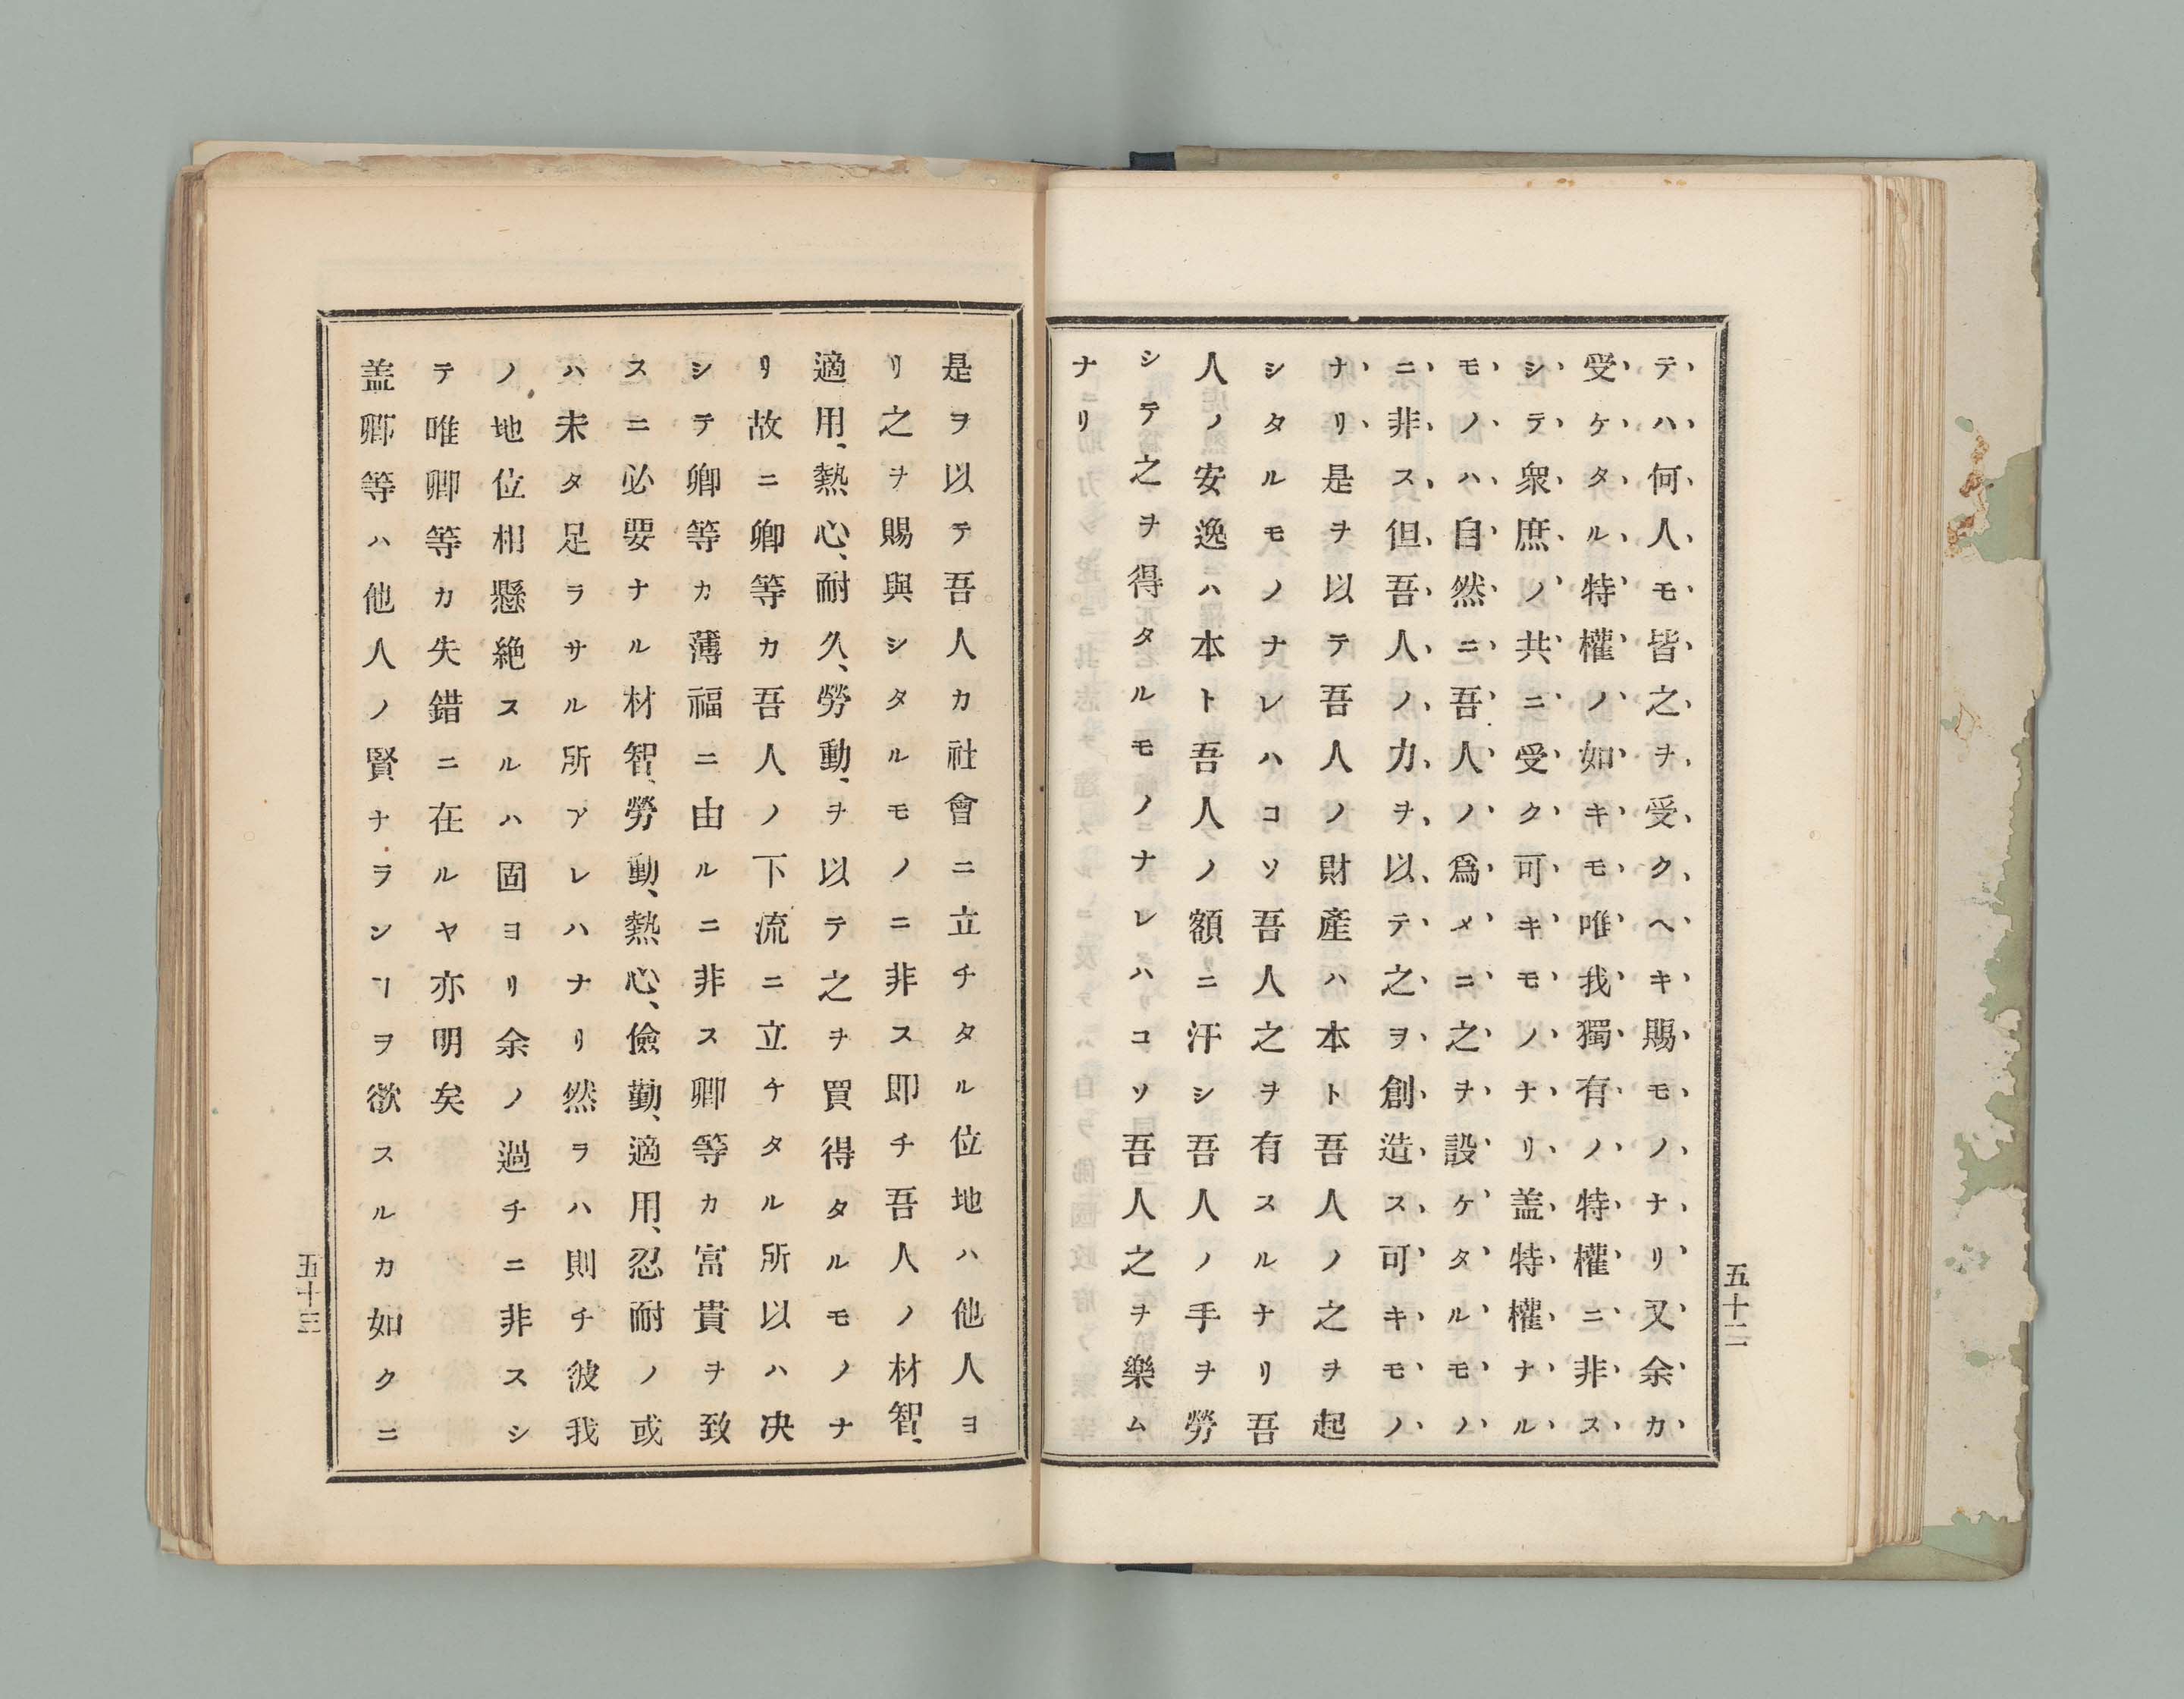 テハ何人モ皆之ヲ受クヘキ賜モノナリ又余カ
受ケタル特權ノ如キモ唯我獨有ノ特權ニ非ス
シテ衆庶ノ共ニ受ク可キモノナリ盖特權ナル
モノハ自然ニ吾人ノ爲メニ之ヲ設ケタルモノ
ニ非ス但吾人ノ力ヲ以テ之ヲ創造ス可キモノ
ナリ是ヲ以テ吾人ノ財產ハ本ト吾人ノ之ヲ起
シタルモノナレハコソ吾人之ヲ有スルナリ吾
人ノ安逸ハ本ト吾人ノ額ニ汗シ吾人ノ手ヲ勞
シテ之ヲ得タルモノナレハコソ吾人之ヲ樂ム
ナリ
五十二
是ヲ以テ吾人カ社會ニ立チタル位地ハ他人ヨ
リ之ヲ賜與シタルモノニ非ス即チ吾人ノ材智、
適用、熱心、耐久、勞動、ヲ以テ之ヲ買得タルモノナ
リ故ニ卿等カ吾人ノ下流ニ立チタル所以ハ决
シテ卿等カ薄福ニ由ルニ非ス卿等カ富貴ヲ致
スニ必要ナル材智、勞動、熱心、儉勤、適用、忍耐ノ或
ハ未タ足ラサル所アレハナリ然ラハ則チ彼我
ノ地位相懸絶スルハ固ヨリ余ノ過チニ非スシ
テ唯卿等カ失錯ニ在ルヤ亦明矣
盖卿等ハ他人ノ賢ナヲンヿヲ欲スルカ如クニ
五十三